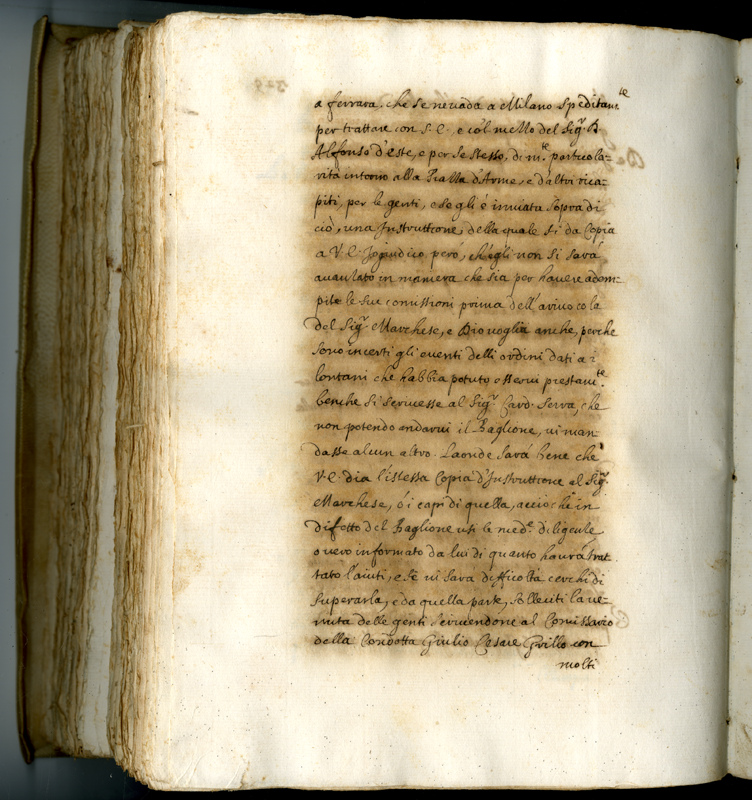 a ferrara. che se ne uada a Milano speditam.te
per trattare con S. E. e col mezzo del Sig.r D.
Alfonso d'este, e per se stesso, di m.te particola=
rità intorno alla Piazza d'Arme, e d'altri rica=
piti, per le genti, e se gli è inuiata sopra di
ciò, una Instruttione, della quale si dà Copia
a V. E. Io giudico però, ch'egli non si sarà
auanzato in maniera che sia per hauere adem=
pite le sue comissioni prima dell'arriuo co la
del Sig.r Marchese, e Dio uoglia anche, perche
sono incerti gli euenti delli ordini dati a i
lontani che habbia potuto esserui prestam.te
benche si scriuesse al Sig.r Card. Serra, che
non potendo andarui il Baglione, ui man
dasse alcun altro. Laonde sarà bene che
V. E. dia l'istessa Copia d'Instruttione al Sig.r
Marchese, ò i capi di quella, acciochè in
difetto del Baglione usi le med.e diligenze
o uero informato da lui di quanto haurà trat
tato l'aiuti, e se ui sarà difficoltà cerchi di
superarla, e da quella parte, solleciti la ue=
nuta delle genti scriuendone al Comissario
della Condotta Giulio Cesare Grillo con
molti